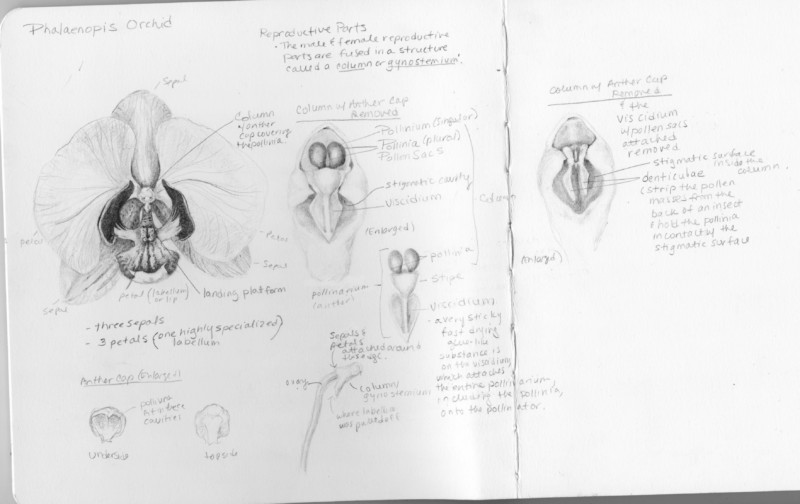 Phalaenopsis Orchid
Reproductive Parts
• The male & female reproductive
parts are fused in a structure
called a column or gynostemium.
Sepal
Column
w/anther
cap covering
the pollinia
petal
Petal
Sepal
Sepal
petal (labellum)
or lip
landing platform
- three sepals
- 3 petals (one highly specialized)
labellum
Anther Cap (Enlarged)
pollinia
fit in these
cavities
underside
topside
Column w/ Anther Cap
Removed
Pollinium (singular)
Pollinia (plural)
Pollen Sacs
stigmatic cavity
viscidium
Column
(Enlarged)
pollinarium
(anther)
pollinia
Stipe
Viscidium
- a very sticky
fast drying
glue-like
substance is
on the viscidium
which attaches
the entire pollinarium,
including the pollinia,
onto the pollinator.
Sepals &
Petals
attached around
this edge.
ovary
column/
gynostemium
where labella
was pulled off
Column w/ Anther Cap
Removed
& the
Viscidium
w/pollen sacs
attached
removed
stigmatic surface
inside the
column.
denticulae
(strip the pollen
masses from the
back of an insect
& hold the pollinia
in contact w/ the
stigmatic surface
Enlarged)